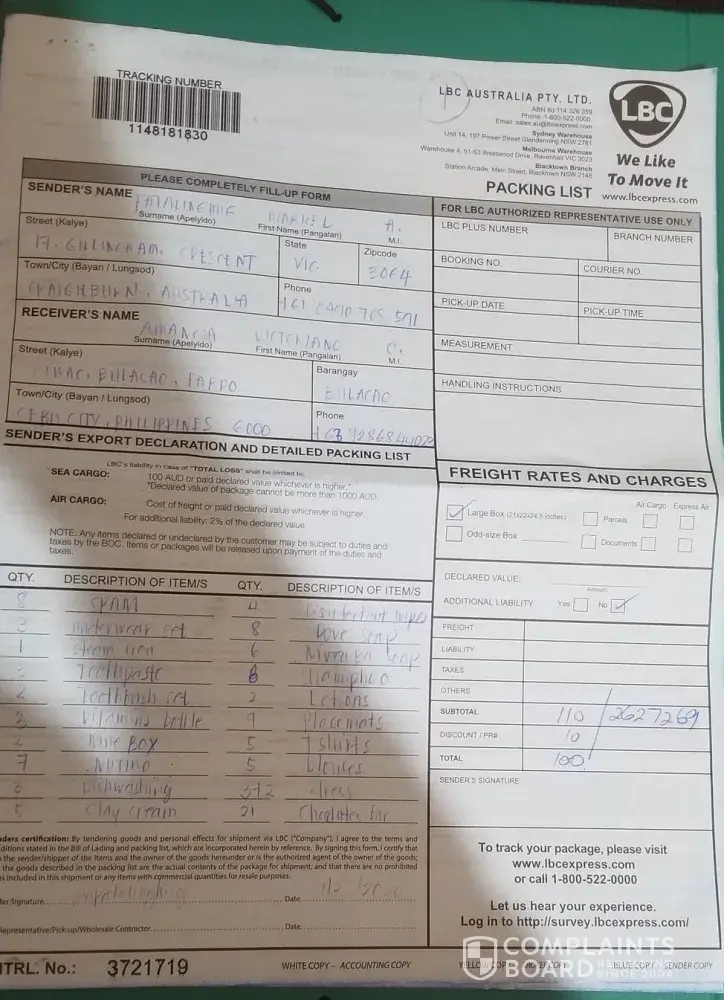 TRACKING NUMBER
1148181830
LBC AUSTRALIA PTY. LTD.
ABN 80 114 326 359
Phone: 1-800-522-0000
Email: sales.au@lbcexpress.com
Sydney Warehouse
Unit 14, 197 Power Street Glendenning NSW 2761
Melbourne Warehouse
Warehouse 4, 51-53 Westwood Drive, Ravenhall VIC 3023
Blacktown Branch
Station Arcade, Main Street, Blacktown NSW 2148
LBC
We Like
To Move It
www.lbcexpress.com
PACKING LIST
PLEASE COMPLETELY FILL-UP FORM
SENDER'S NAME MARICEL A.
Surname (Apelyido) First Name (Pangalan) M.I.
Street (Kalye) State Zipcode
17. GILLINGHAM. CRESCENT VIC 3064
Town/City (Bayan / Lungsod) Phone
CRAIGIEBURN, AUSTRALIA
RECEIVER'S NAME VICTORIANO C.
Surname (Apelyido) First Name (Pangalan) M.I.
Street (Kalye) Barangay
BULACAO, PARDO BULACAO
Town/City (Bayan / Lungsod) Phone
CEBU CITY, PHILIPPINES 6000
FOR LBC AUTHORIZED REPRESENTATIVE USE ONLY
LBC PLUS NUMBER BRANCH NUMBER
BOOKING NO. COURIER NO.
PICK-UP DATE PICK-UP TIME
MEASUREMENT
HANDLING INSTRUCTIONS
SENDER'S EXPORT DECLARATION AND DETAILED PACKING LIST
LBC's liability in case of "TOTAL LOSS" shall be limited to:
SEA CARGO: 100 AUD or paid declared value whichever is higher."
"Declared value of package cannot be more than 1000 AUD.
AIR CARGO: Cost of freight or paid declared value whichever is higher
For additional liability: 2% of the declared value
NOTE: Any items declared or undeclared by the customer may be subject to duties and
taxes by the BOC. Items or packages will be released upon payment of the duties and
taxes.
QTY. DESCRIPTION OF ITEM/S QTY. DESCRIPTION OF ITEM/S
8 SPAM 4 Disinfectant wipes
3 underwear set 8 Dove soap
1 steam iron 6 soap
Toothpaste
2 Toothbrush set 2 Lotions
vitamins bottle 9 Placemats
Box 5 T shirts
7 5 blouses
Dishwashing dress
5 Clay cream 21 Chocolates bar
FREIGHT RATES AND CHARGES
Air Cargo Express Air
Large Box (21x22x24.5 inches) Parcels
Odd-size Box Documents
DECLARED VALUE:
Amount
ADDITIONAL LIABILITY Yes No
FREIGHT
LIABILITY
TAXES
OTHERS
SUBTOTAL 110 2627269
DISCOUNT / PR# 10
TOTAL 100
SENDER'S SIGNATURE
ders certification: By tendering goods and personal effects for shipment via LBC ("Company"), I agree to the terms and
ditions stated in the Bill of Lading and packing list, which are incorporated herein by reference. By signing this form, I certify that
the sender/shipper of the Items and the owner of the goods hereunder or is the authorized agent of the owner of the goods;
the goods described in the packing list are the actual contents of the package for shipment; and that there are no prohibited
s included in this shipment or any items with commercial quantities for resale purposes.
er Signature Date
Representative/Pick-up/Wholesale Contractor Date
To track your package, please visit
www.lbcexpress.com
or call 1-800-522-0000
Let us hear your experience.
Log in to http://survey.lbcexpress.com/
NTRL. No.: 3721719 WHITE COPY – ACCOUNTING COPY BLUE COPY – SENDER COPY
COMPLAINTS
BOARD
SINCE 2004